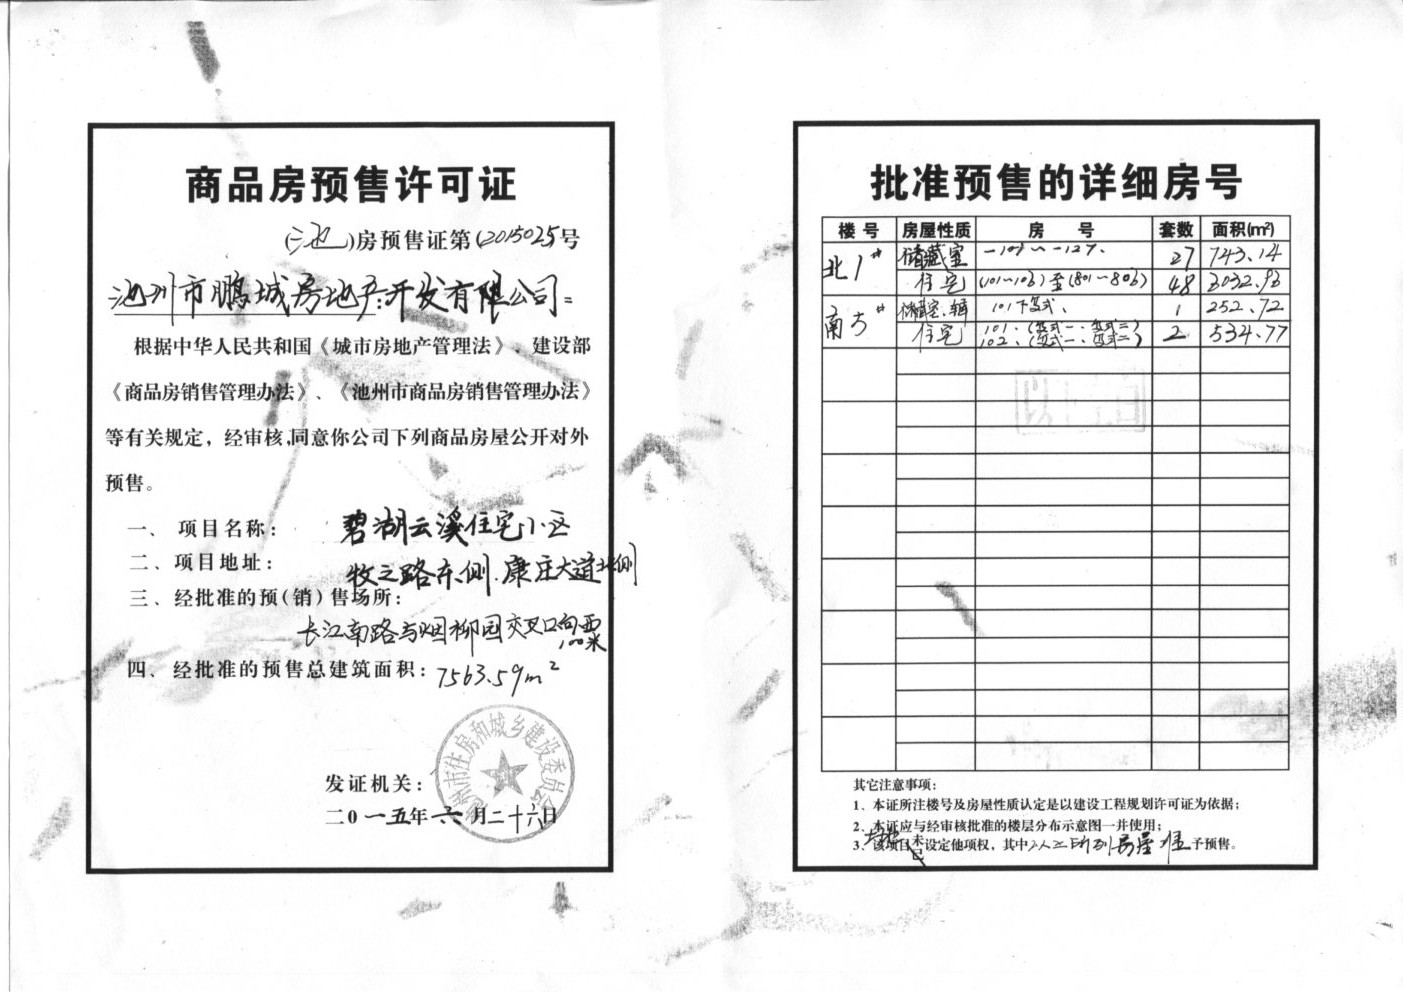 商品房预售许可证
(池)房预售证第(2015025号
池州市鹏城房地产开发有限公司:
根据中华人民共和国《城市房地产管理法》、建设部
《商品房销售管理办法》、《池州市商品房销售管理办法》
等有关规定，经审核,同意你公司下列商品房屋公开对外
预售。
一、项目名称: 碧湖云溪住宅小区
二、项目地址: 牧之路东侧.康庄大道北侧
三、经批准的预(销)售场所:
长江南路与烟柳园交叉口向西100米
四、经批准的预售总建筑面积: 7563.59m²
池州市住房和城乡建设委员会
发证机关:
二0一五年六月二十六日
批准预售的详细房号
楼号 房屋性质 房号 套数 面积(m²)
北1# 储藏室 -101~-127. 27 743.14
住宅 (101~106)至(801~806) 48 3032.93
南5# 101下复式、 1 252.72
住宅 101、(复式一、复式二) 2 534.77
102、(复式一、复式二)
其它注意事项:
1、本证所注楼号及房屋性质认定是以建设工程规划许可证为依据;
2、本证应与经审核批准的楼层分布示意图一并使用;
3、该项目土地未设定他项权，其中以上所列房屋准予预售。